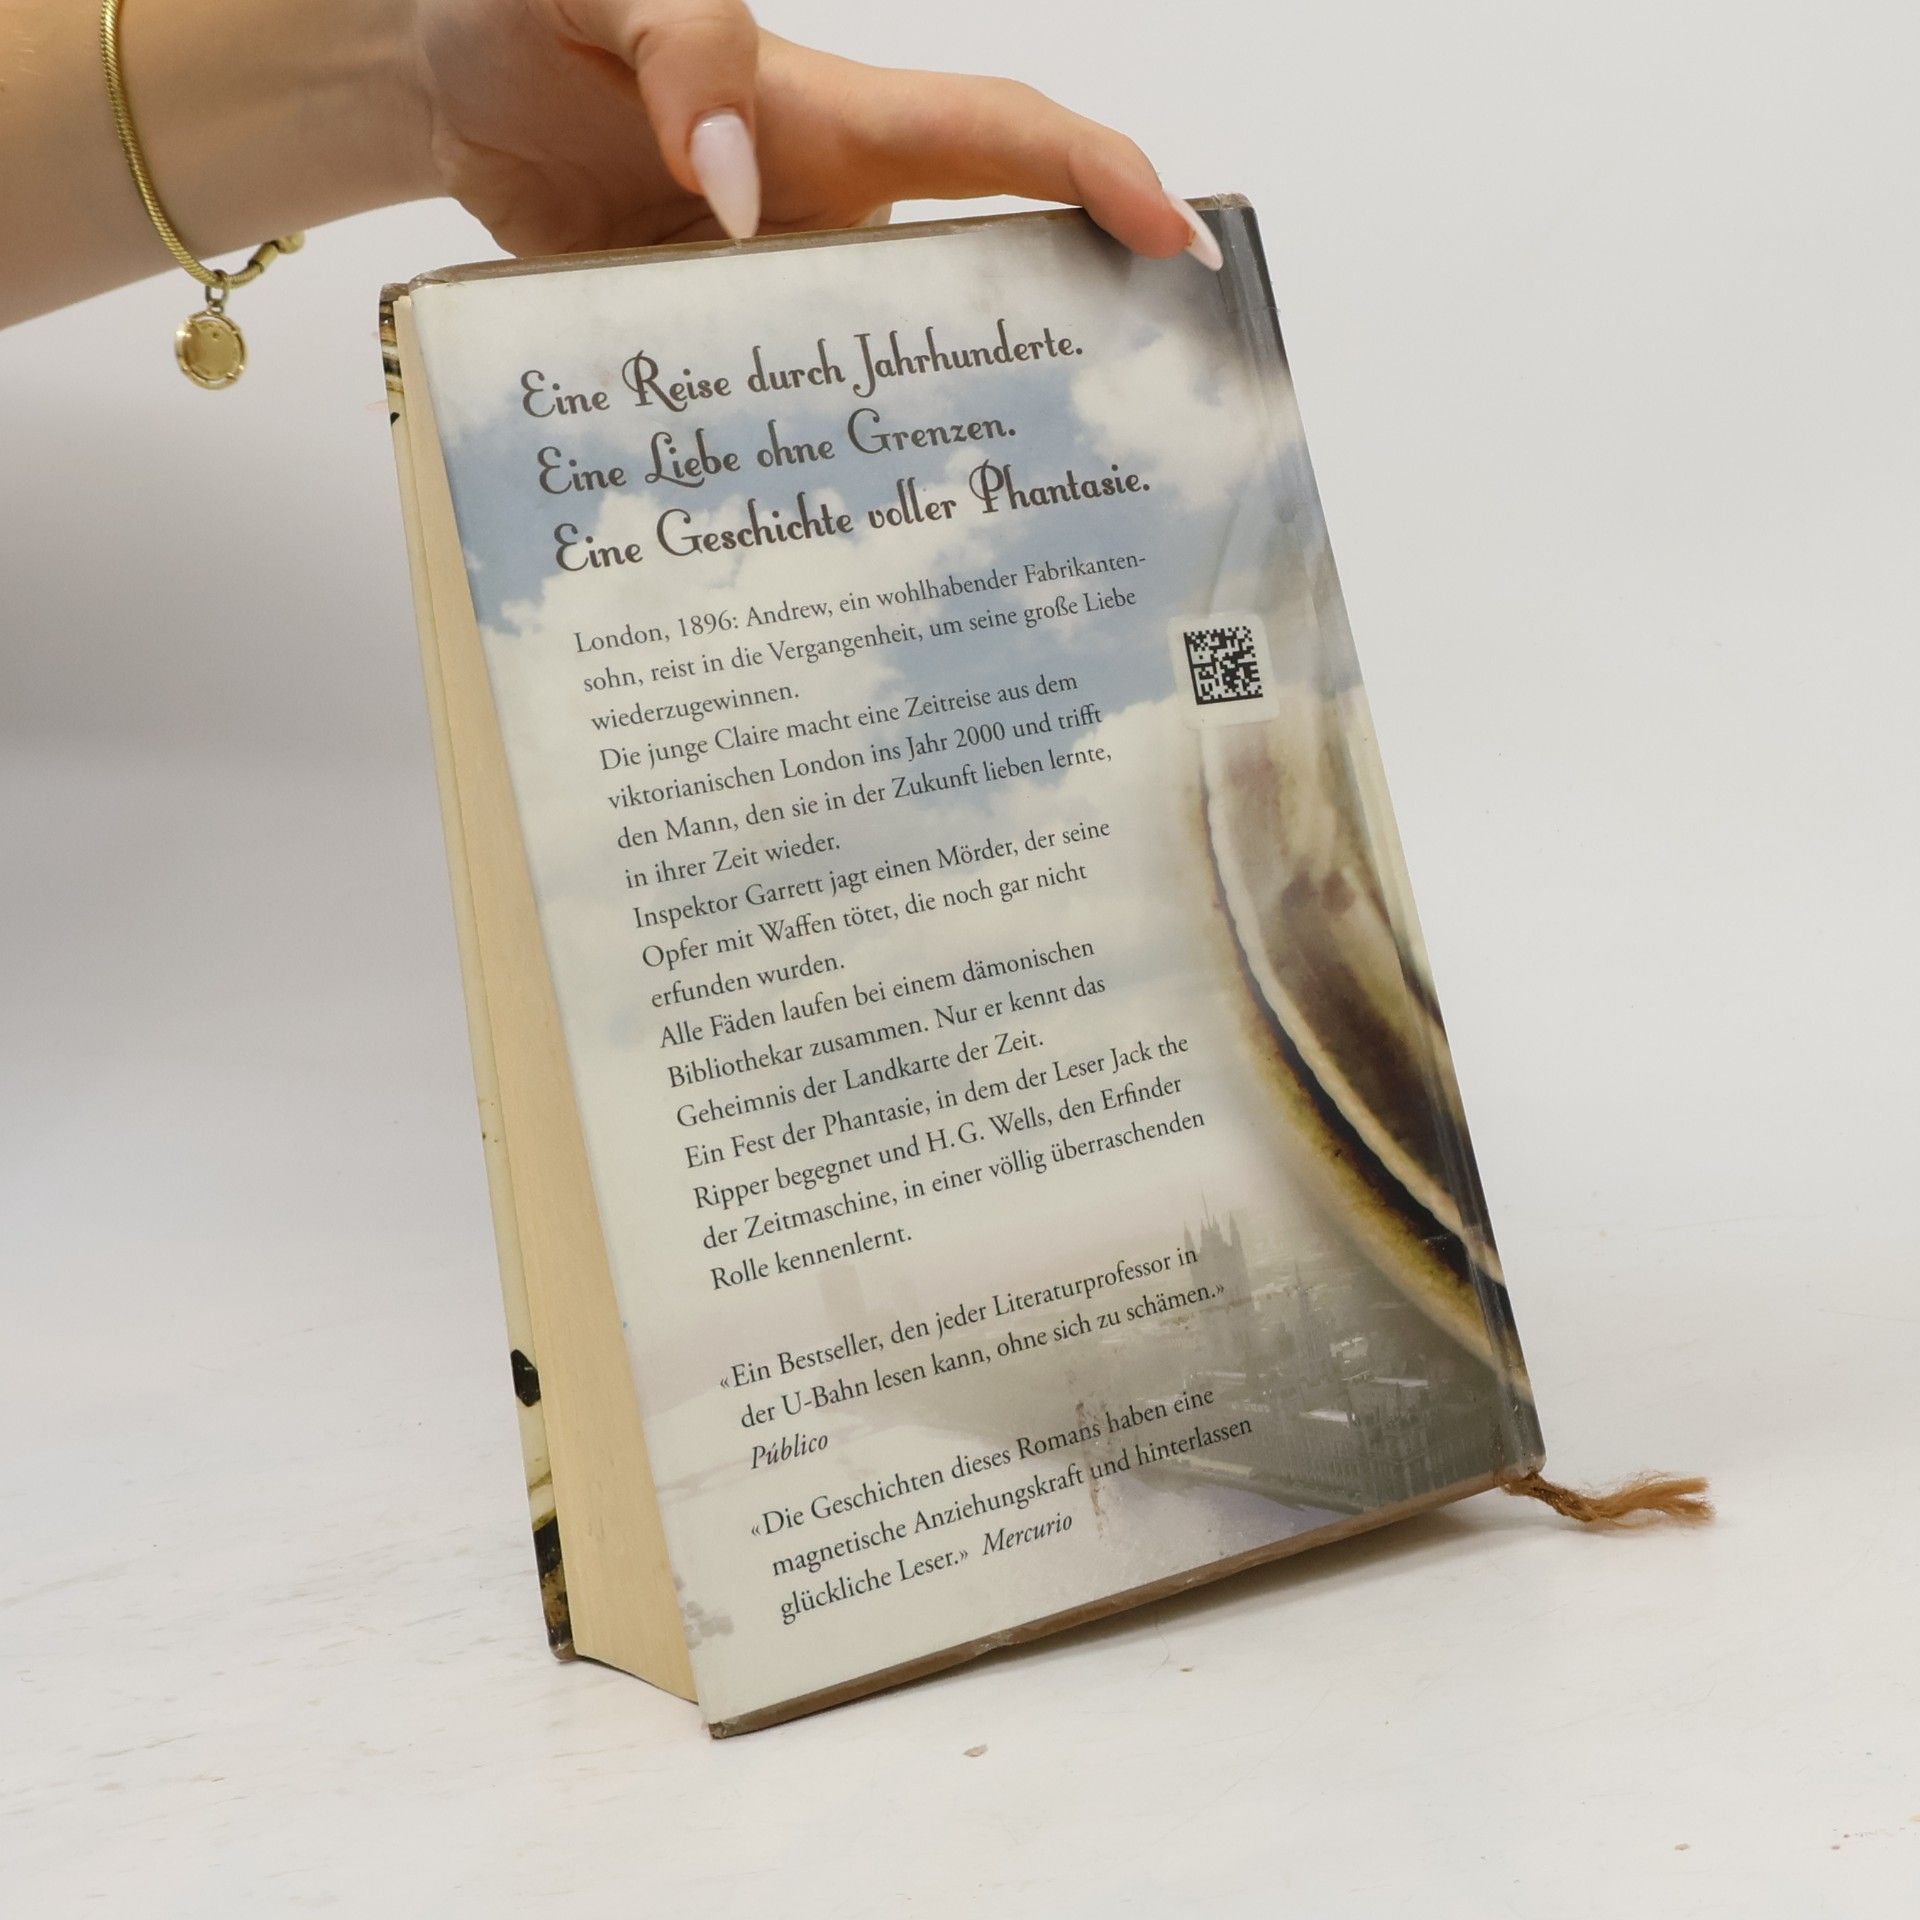 Eine Reise durch Jahrhunderte.
Eine Liebe ohne Grenzen.
Eine Geschichte voller Phantasie.
London, 1896: Andrew, ein wohlhabender Fabrikanten-
sohn, reist in die Vergangenheit, um seine große Liebe
wiederzugewinnen.
Die junge Claire macht eine Zeitreise aus dem
viktorianischen London ins Jahr 2000 und trifft
den Mann, den sie in der Zukunft lieben lernte,
in ihrer Zeit wieder.
Inspektor Garrett jagt einen Mörder, der seine
Opfer mit Waffen tötet, die noch gar nicht
erfunden wurden.
Alle Fäden laufen bei einem dämonischen
Bibliothekar zusammen. Nur er kennt das
Geheimnis der Landkarte der Zeit.
Ein Fest der Phantasie, in dem der Leser Jack the
Ripper begegnet und H. G. Wells, den Erfinder
der Zeitmaschine, in einer völlig überraschenden
Rolle kennenlernt.
«Ein Bestseller, den jeder Literaturprofessor in
der U-Bahn lesen kann, ohne sich zu schämen.»
Público
«Die Geschichten dieses Romans haben eine
magnetische Anziehungskraft und hinterlassen
glückliche Leser.» Mercurio